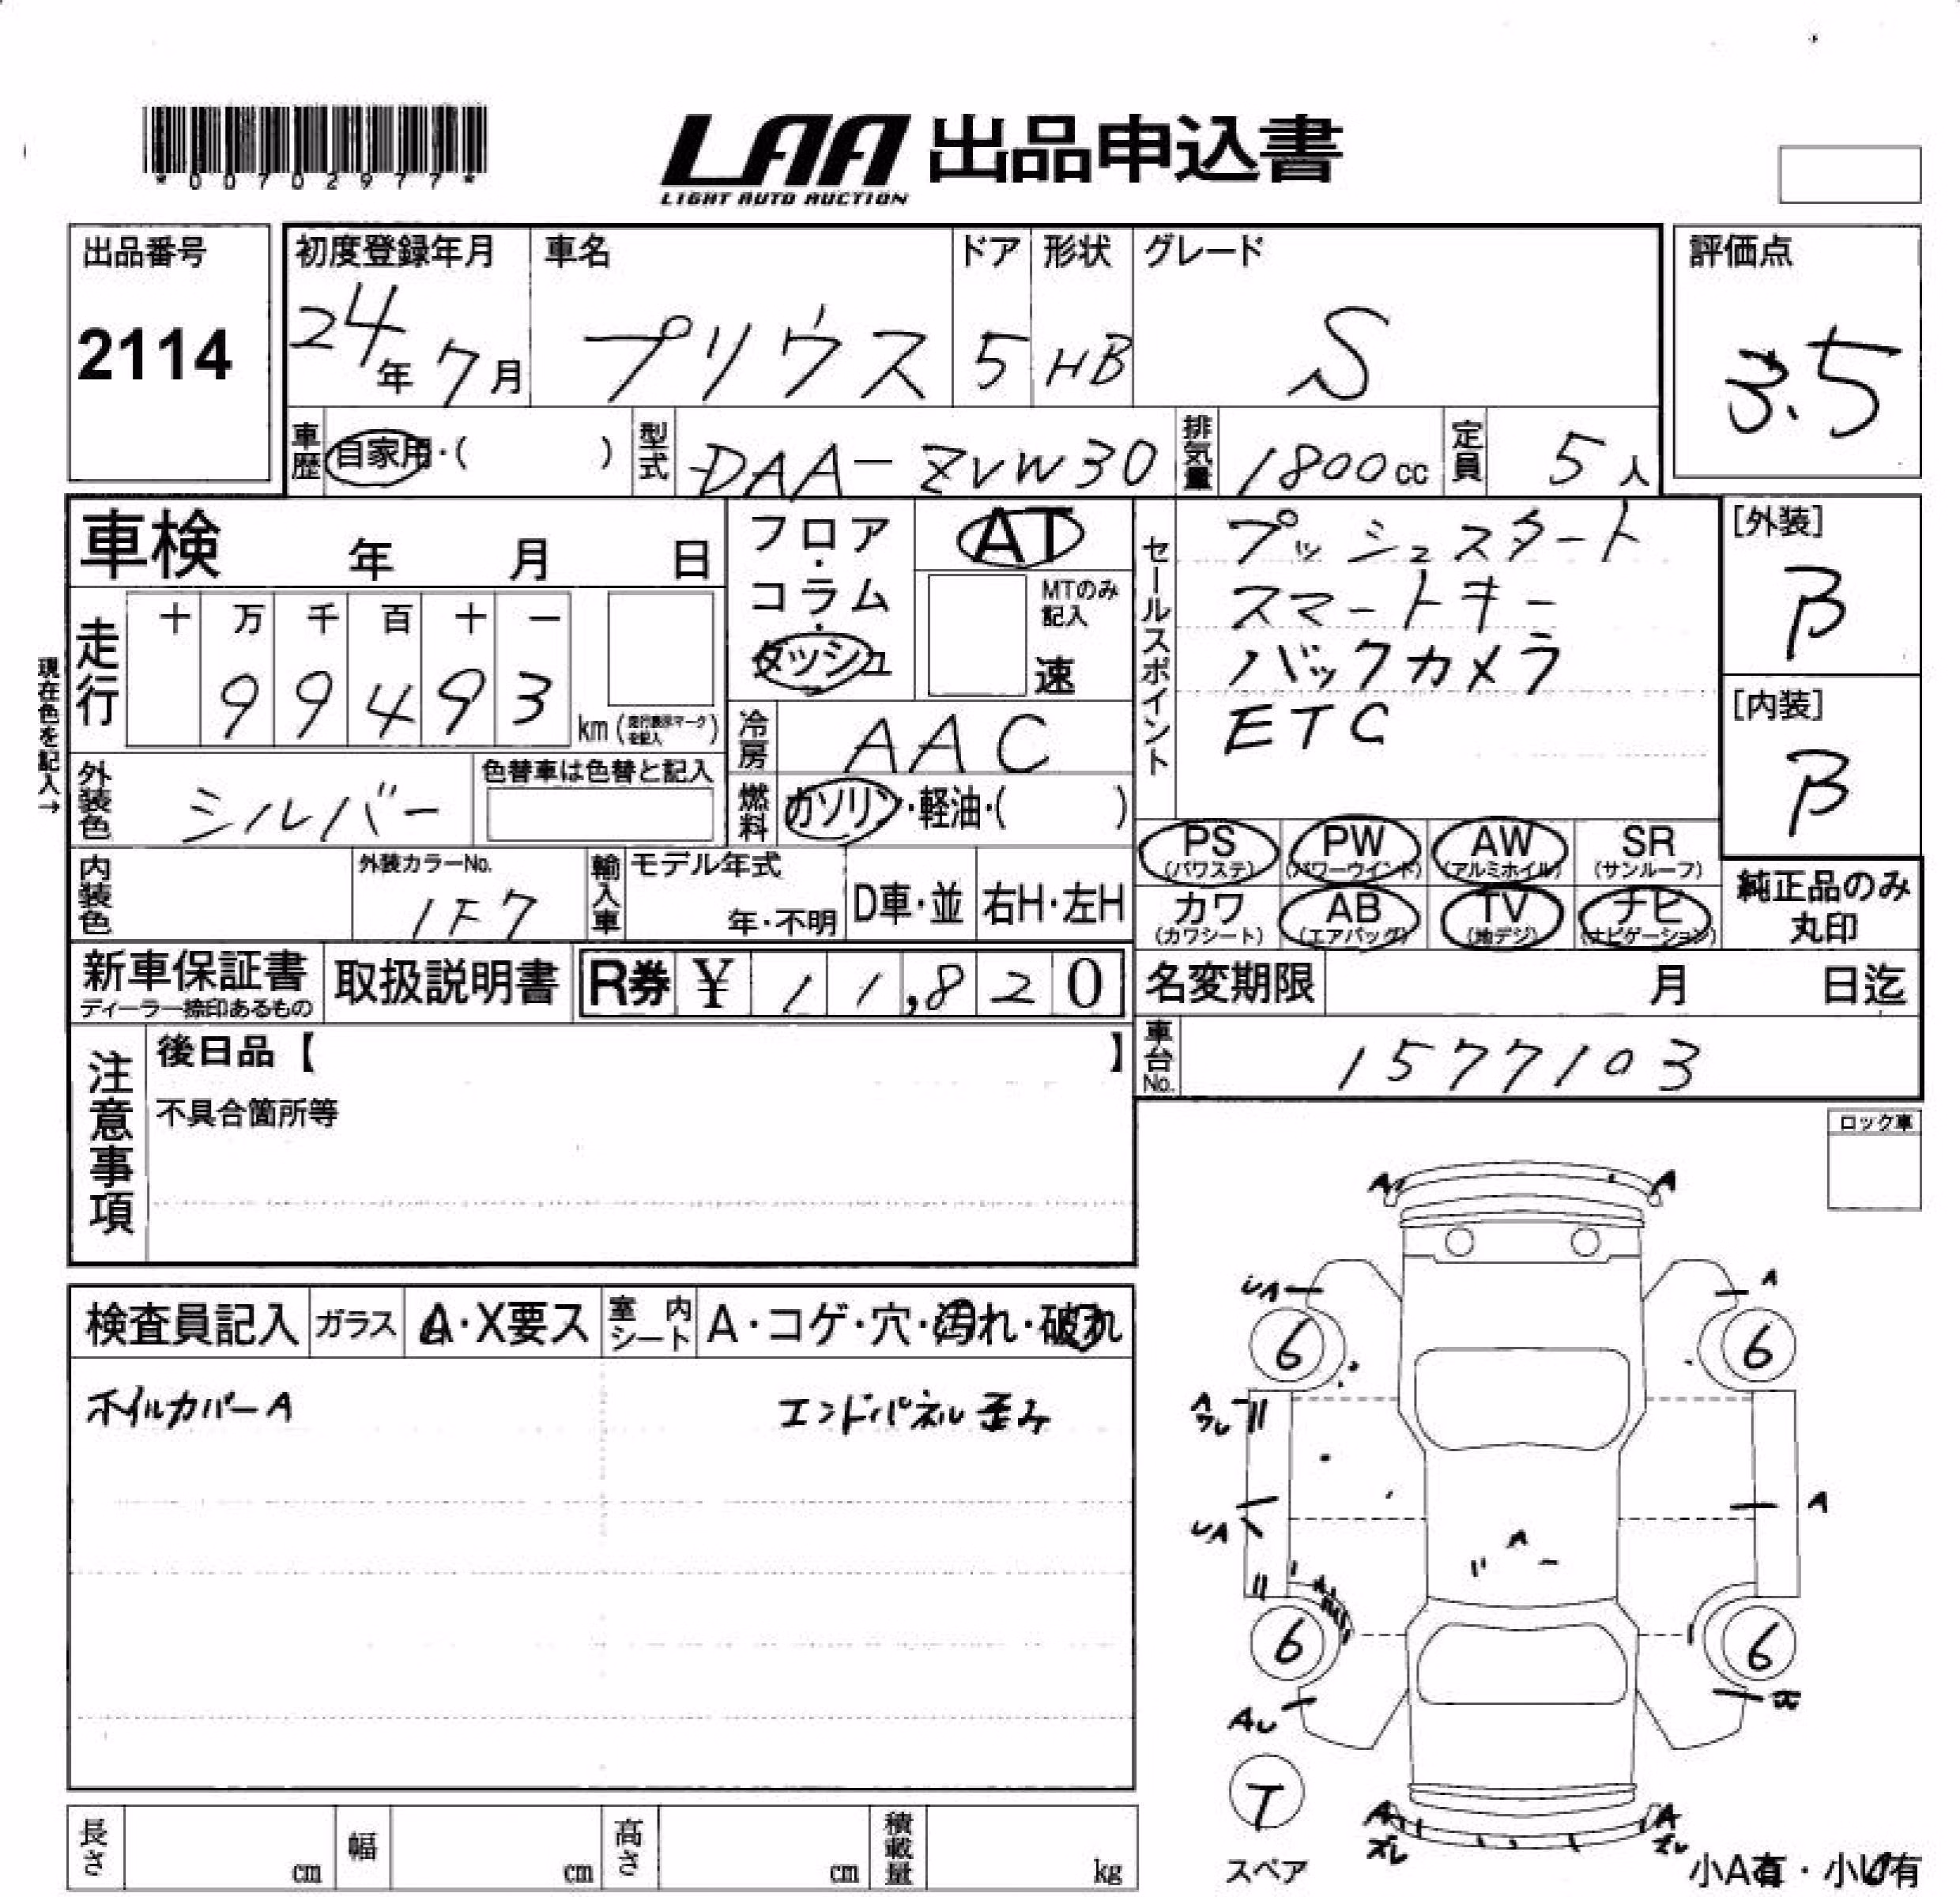 *00702977*
LAA 出品申込書
LIGHT AUTO AUCTION
出品番号
2114
初度登録年月
24年 7月
車名
プリウス
ドア
5
形状
HB
グレード
S
評価点
3.5
車歴
自家用・( )
型式
DAA-ZVW30
排気量
1800cc
定員
5人
車検 年 月 日
フロア・コラム・ダッシュ
AT
MTのみ記入
速
セールスポイント
プッシュスタート
スマートキー
バックカメラ
ETC
[外装]
B
[内装]
B
現在色を記入→
走行
十 万 千 百 十 一
9 9 4 9 3
km(走行表示マークを記入)
冷房
AAC
外装色
シルバー
色替車は色替と記入
燃料
ガソリン・軽油・( )
PS
(パワステ)
PW
(パワーウインド)
AW
(アルミホイル)
SR
(サンルーフ)
カワ
(カワシート)
AB
(エアバッグ)
TV
(地デジ)
ナビ
(ナビゲーション)
純正品のみ
丸印
内装色
外装カラーNo.
1F7
輸入車
モデル年式
年・不明
D車・並
右H・左H
新車保証書
ディーラー捺印あるもの
取扱説明書
R券 ¥ 11,820
名変期限 月 日迄
車台No.
1577103
注意事項
後日品【 】
不具合箇所等
ロック車
検査員記入
ガラス
A・X要ス
室内シート
A・コゲ・穴・汚れ・破れ
ホイルカバーA
エンドパネル歪み
A A
A
6 6
A
A
A
6 6
T
スペア
A A
小A有・小U有
長さ cm
幅 cm
高さ cm
積載量 kg